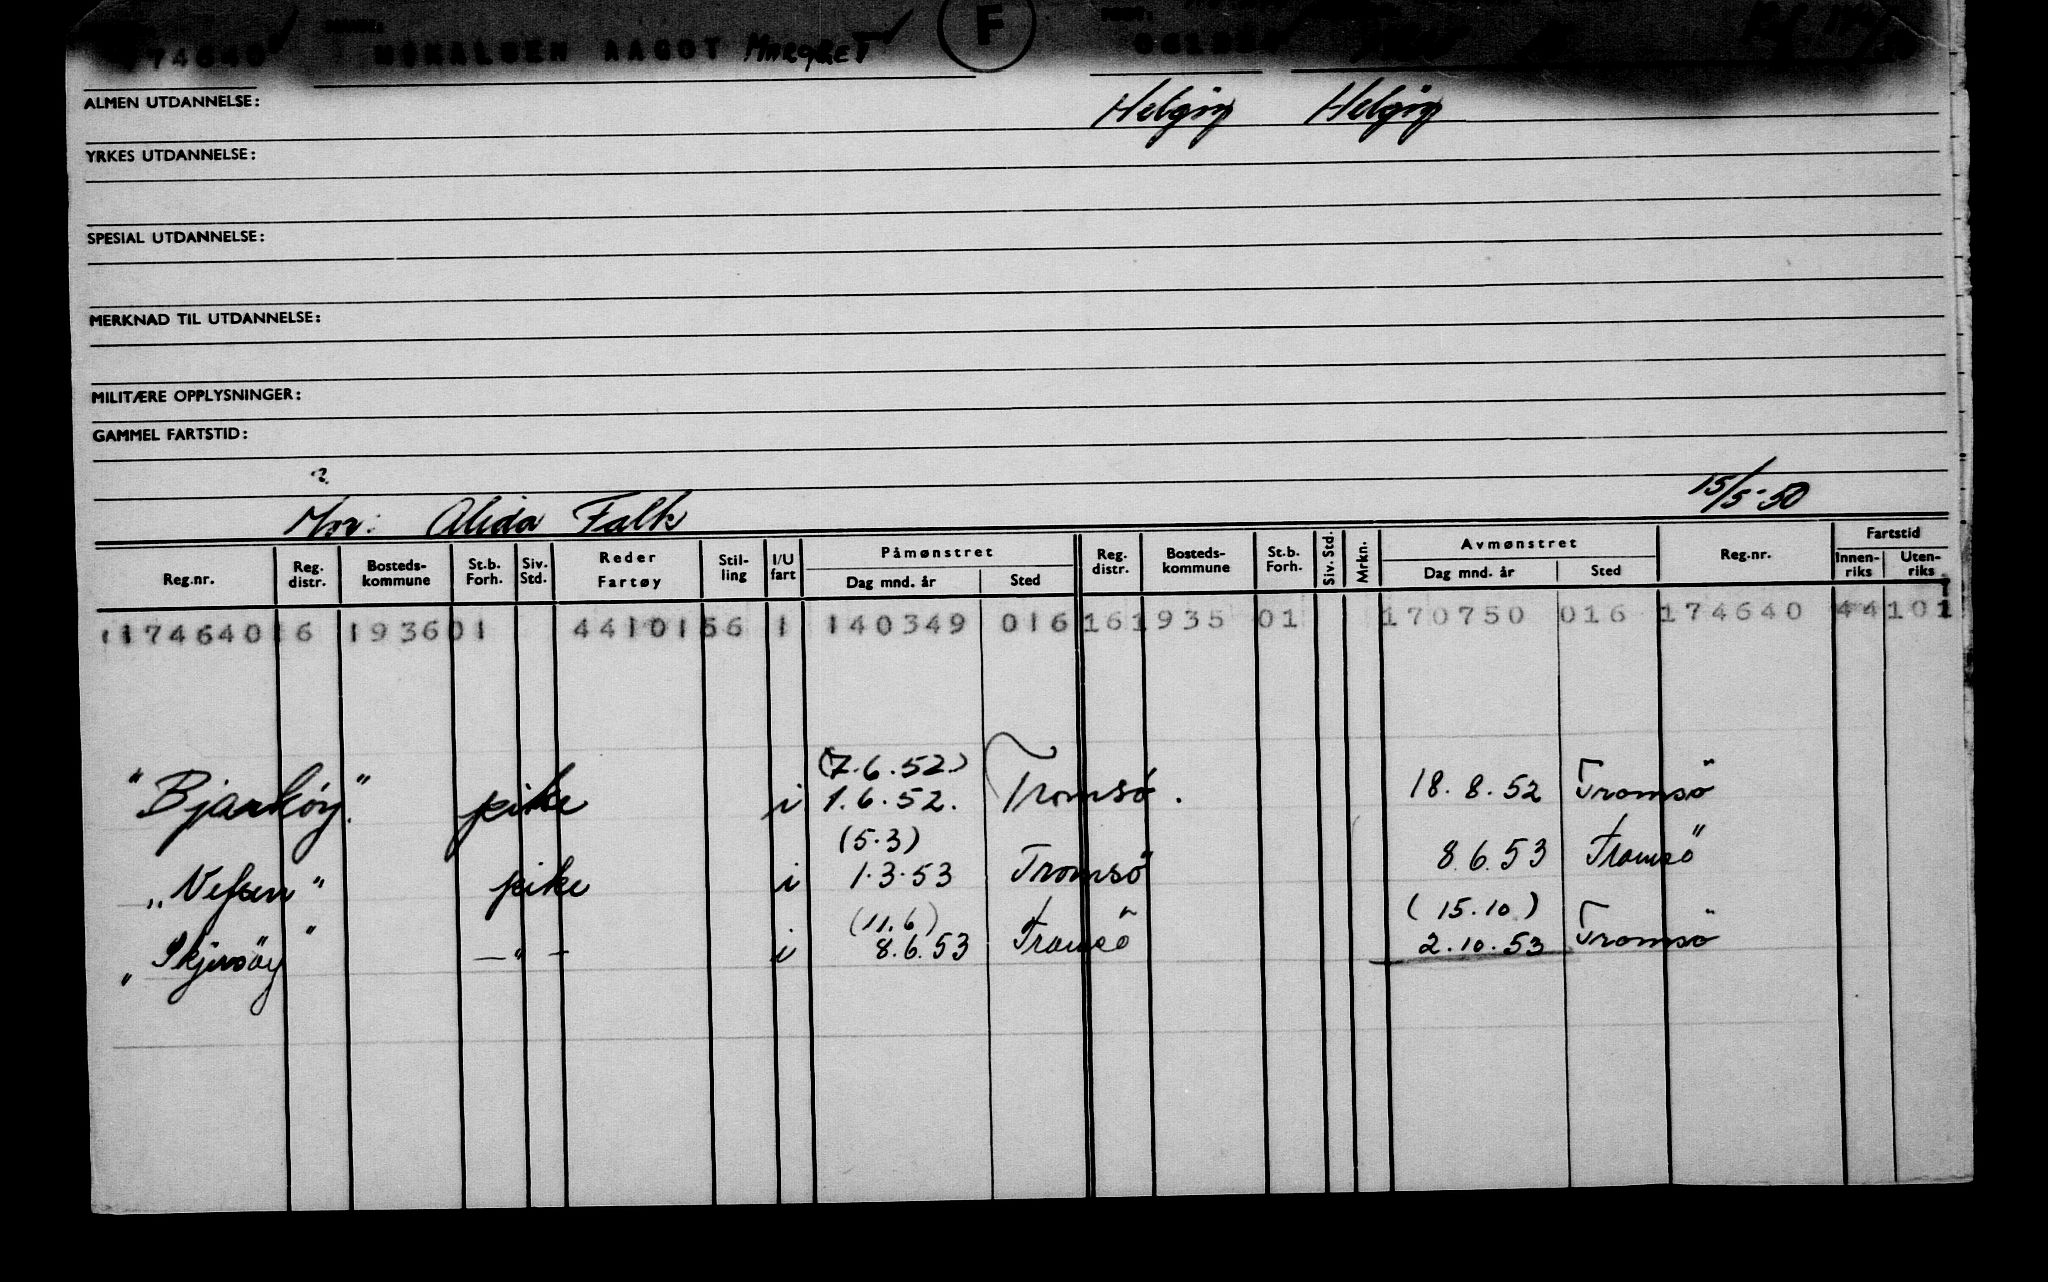 174640 AAGOT MARGRET F
ALMEN UTDANNELSE: Helgøy Helgøy
YRKES UTDANNELSE:
SPESIAL UTDANNELSE:
MERKNAD TIL UTDANNELSE:
MILITÆRE OPPLYSNINGER:
GAMMEL FARTSTID:
?
Mor: Alida Falk 15/5-50
Reg.nr. Reg. distr. Bosteds-kommune St.b. Forh. Siv. Std. Reder Fartøy Stil-ling I/U fart Påmønstret Dag mnd. år Sted Reg. distr. Bosteds-kommune St.b. Forh. Siv. Std. Mrkn. Avmønstret Dag mnd. år Sted Reg.nr. Fartstid Innen-riks Uten-riks
1174640 16 1936 01 44101 56 1 140349 016 16 1935 01 170750 016 174640 44 101
(7.6.52.)
"Bjarköy". pike i 1.6.52. Tromsö. 18.8.52 Tromsö
(5.3)
„Vefsn" pike i 1.3.53 Tromsö 8.6.53 Tromsö
(11.6) (15.10)
„Skjersöy" —„— i 8.6.53 Tromsö 2.10.53 Tromsö